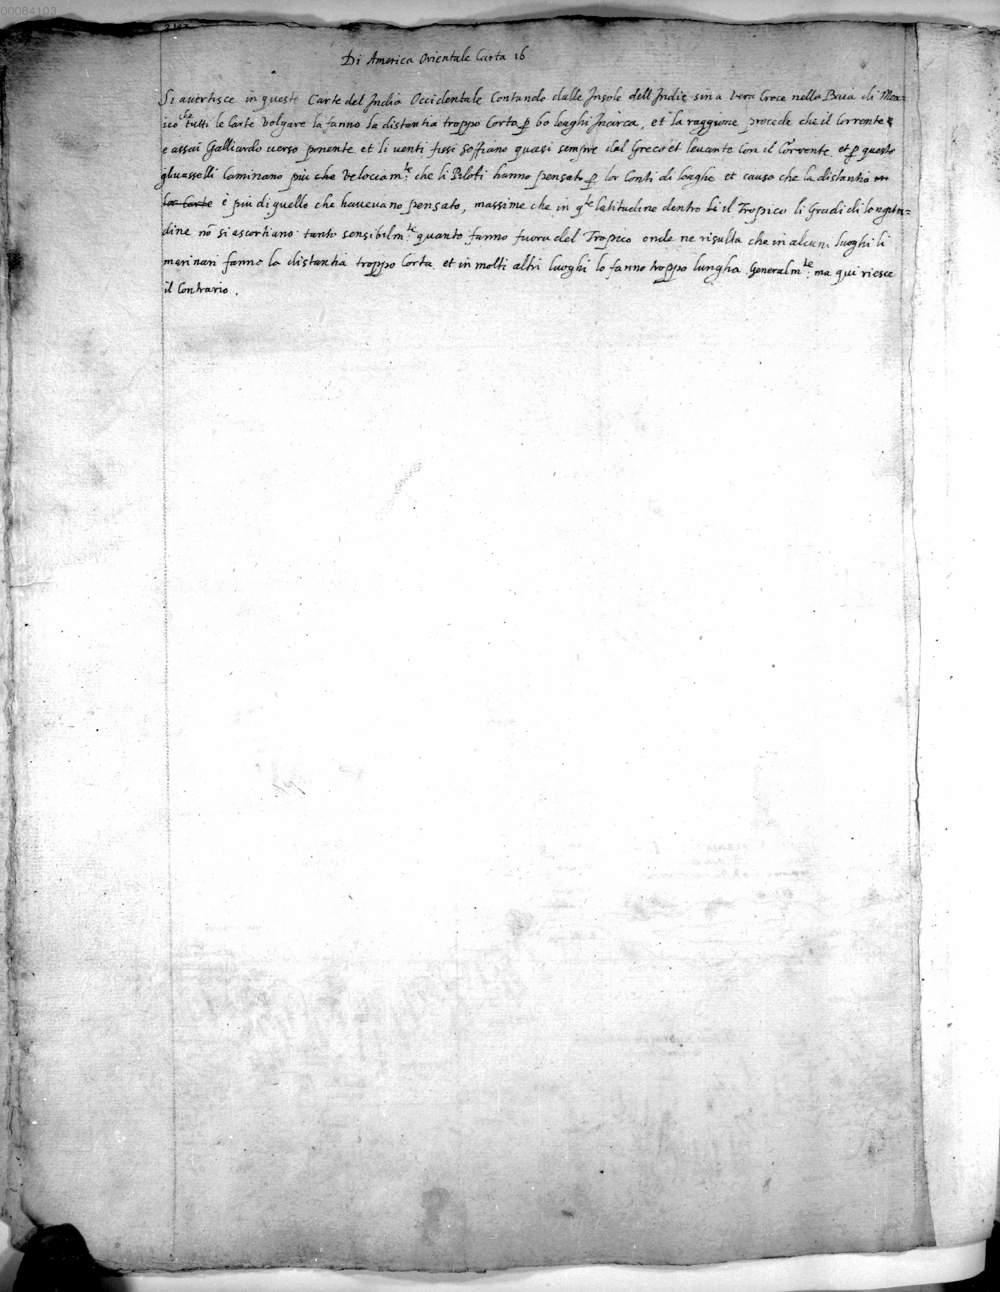 00084103
Di America Orientale Carta 16
Si avertisce in queste Carte del India Occidentale Contando dalle Insole dell Indie sin a Vera Croce nella Baia di Mex=
ico che tutti le Carte volgare la fanno la distantia troppo Corta p 60 leaghi Incirca, et la raggione procede che il corrente
e assai Galliardo verso ponente et li venti fissi soffiano quasi sempre dal Greco et levante con il Corrente et p questo
gli vasselli Caminano piu che velociamte che li Piloti hanno pensato p lor Conti di leaghe et causa che la distantia in
lor Carte è piu di quello che havevano pensato, massime che in qle latitudine dentro il Tropico li Gradi di longitu=
dine nō si ascortiano tanto sensibilmte quanto fanno fuora del Tropico onde ne risulta che in alcuni luoghi li
marinari fanno la distantia troppo Corta et in molti altri luoghi lo fanno troppo lungha Generalmte: ma qui riesce
il Contrario.